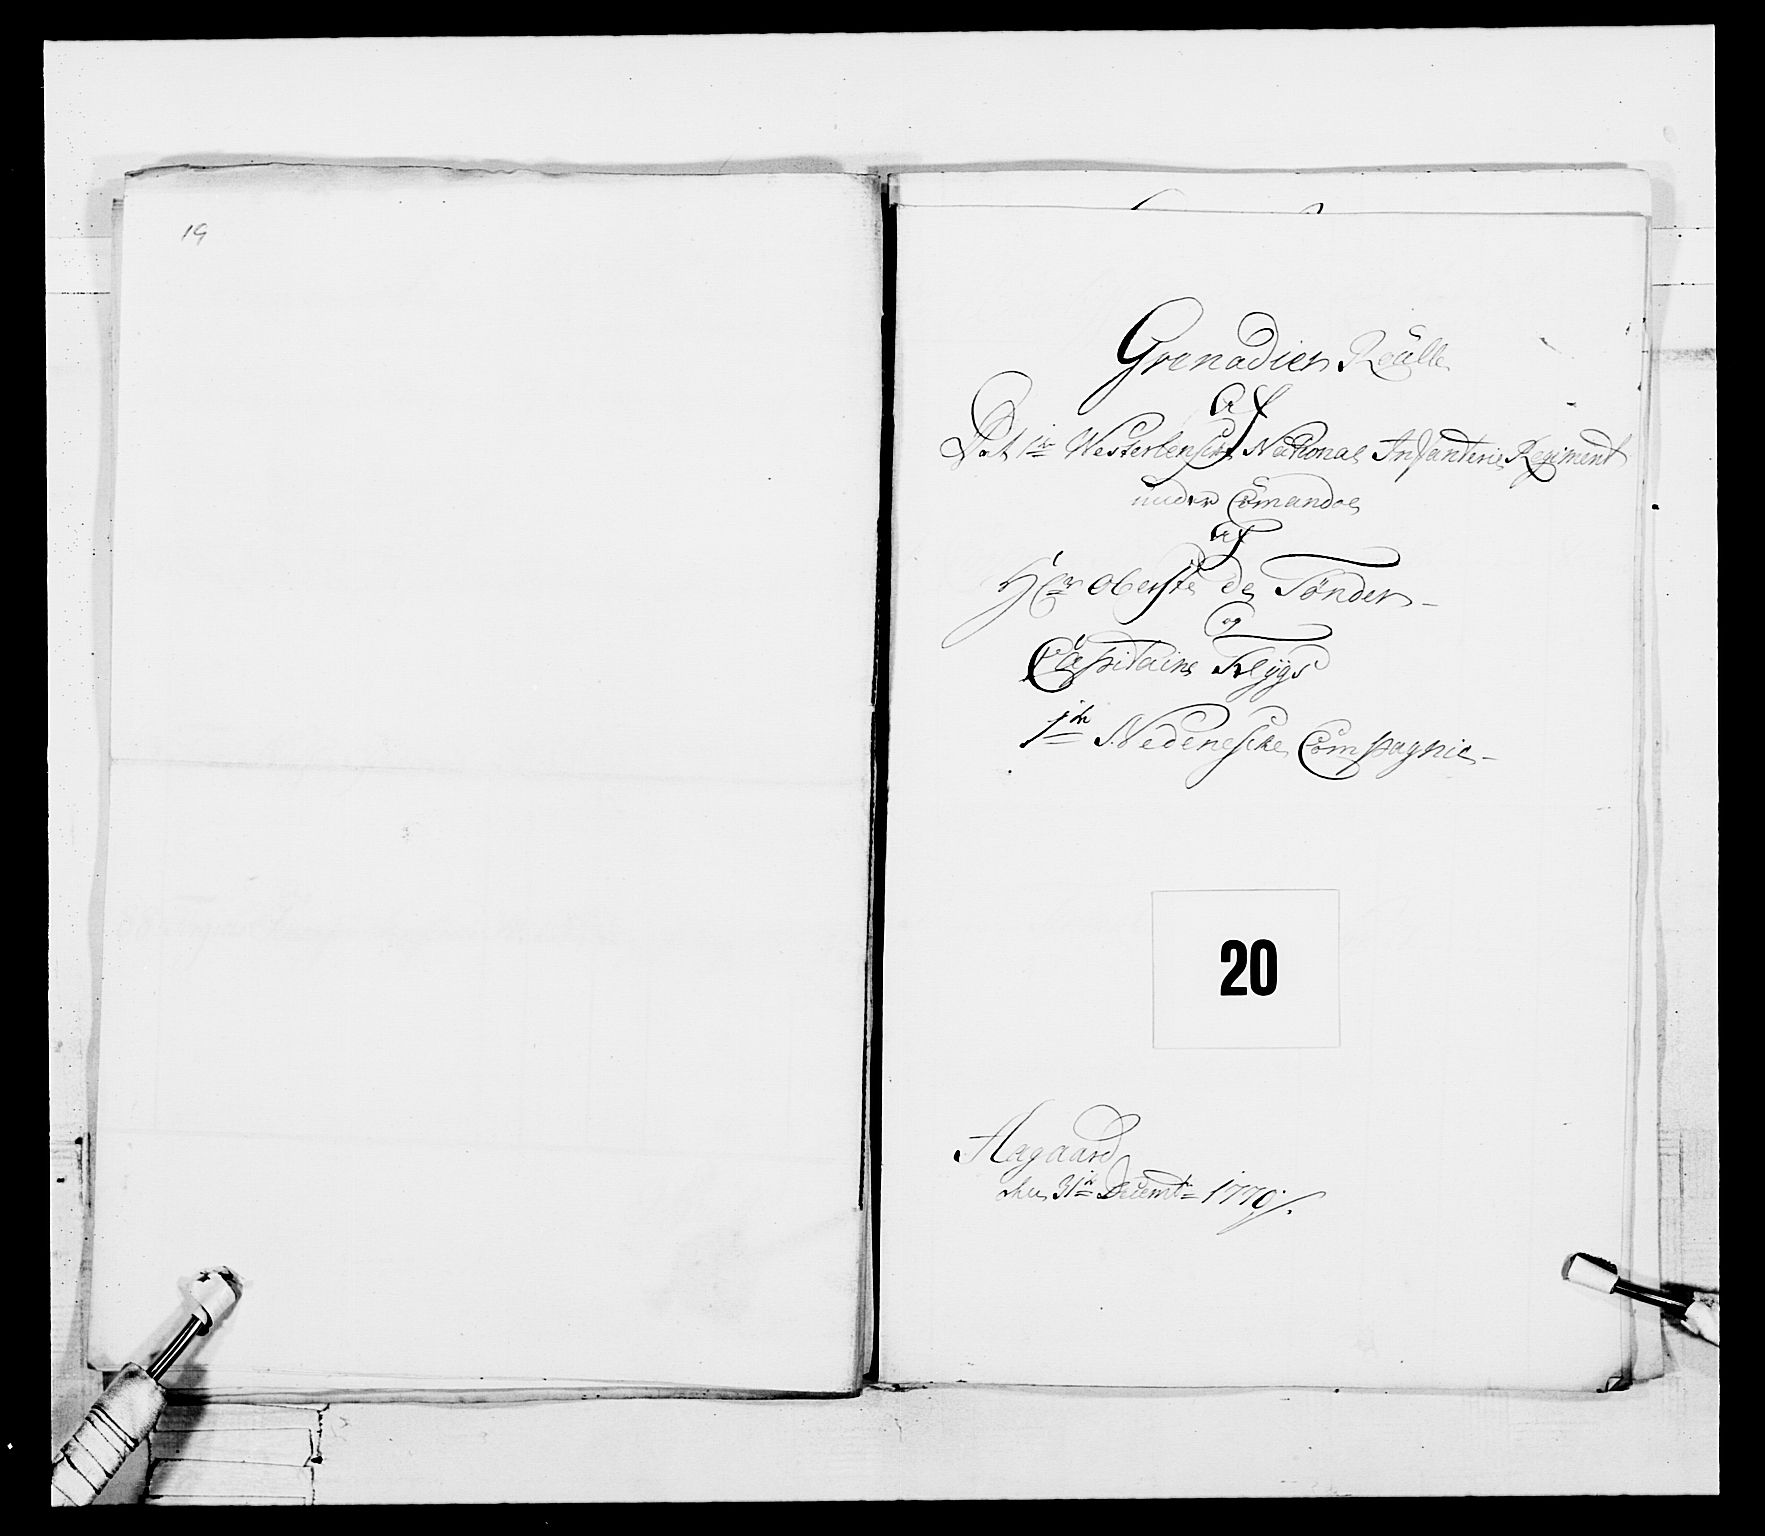 19
Grenadier Roulle
af
Det 1te Westerlenske National Infanterie Regiment
under Comando
af
Hr Oberste de Tønder
og
Capitaine
1te Nedeneske Compagnie
20
Aagaard
den 31te Decembr 1770